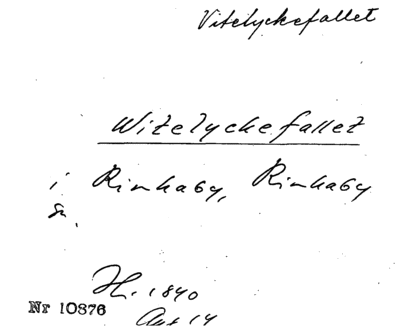 Vitelyckefallet
Witelyckefallet
i Rinkaby, Rinkaby
sn.
H. 1840
Nr 10876
Akt 14